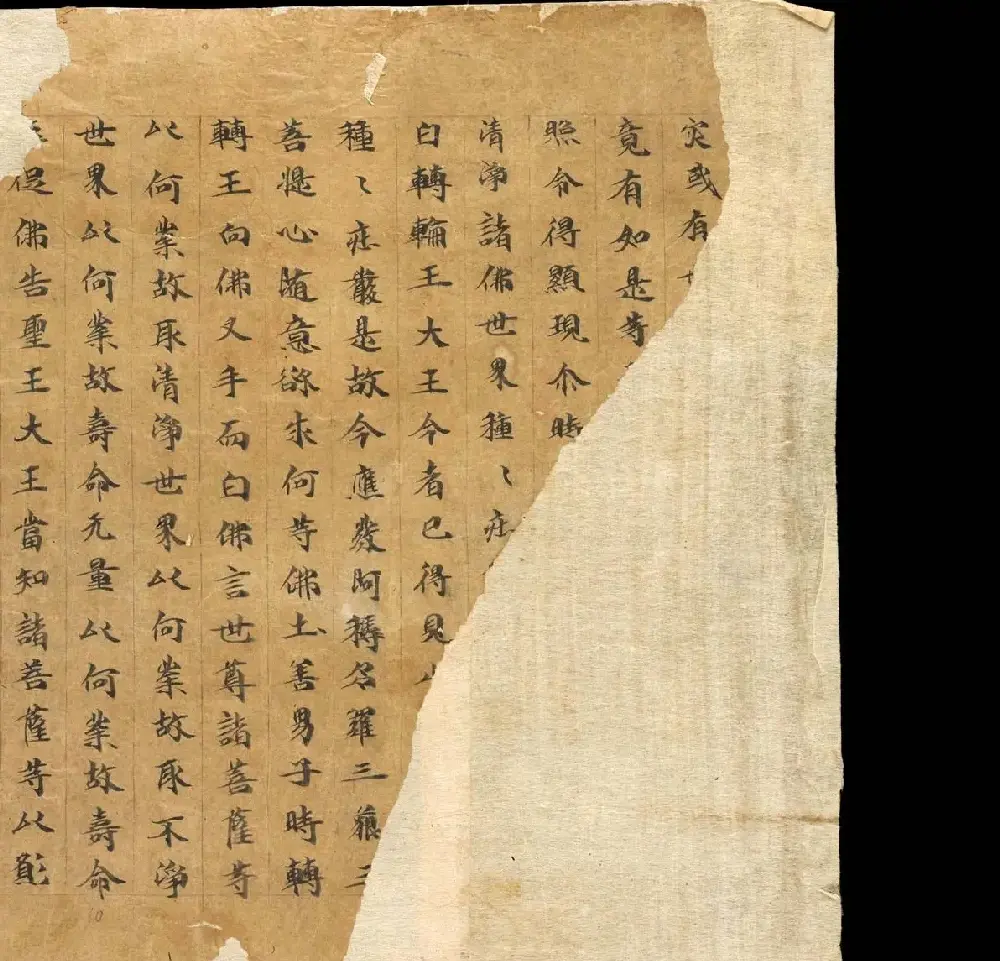 灾或有
竟有如是等
照令得顯現尒時
清淨諸佛世界種〻庄
白轉輪王大王今者已得見
種〻庄嚴是故今應發阿耨多羅三藐三
菩提心隨意欲求何等佛土善男子時轉
轉王向佛叉手而白佛言世尊諸菩薩等
以何業故取清淨世界以何業故取不淨
世界以何業故壽命无量以何業故壽命
促佛告聖王大王當知諸菩薩等以願